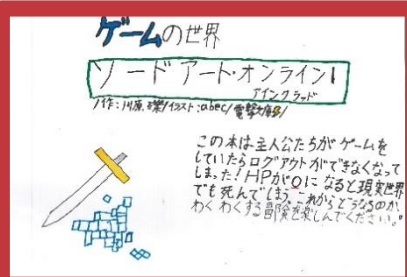 ゲームの世界
ソードアート・オンライン1
アインクラッド
/作:川原 礫/イラスト:abec/電撃文庫/
この本は主人公たちがゲームを
していたらログアウトができなくなって
しまった!HPが0になると現実世界
でも死んでしまう。これからどうなるのか、
わくわくする冒険を楽しんでください。